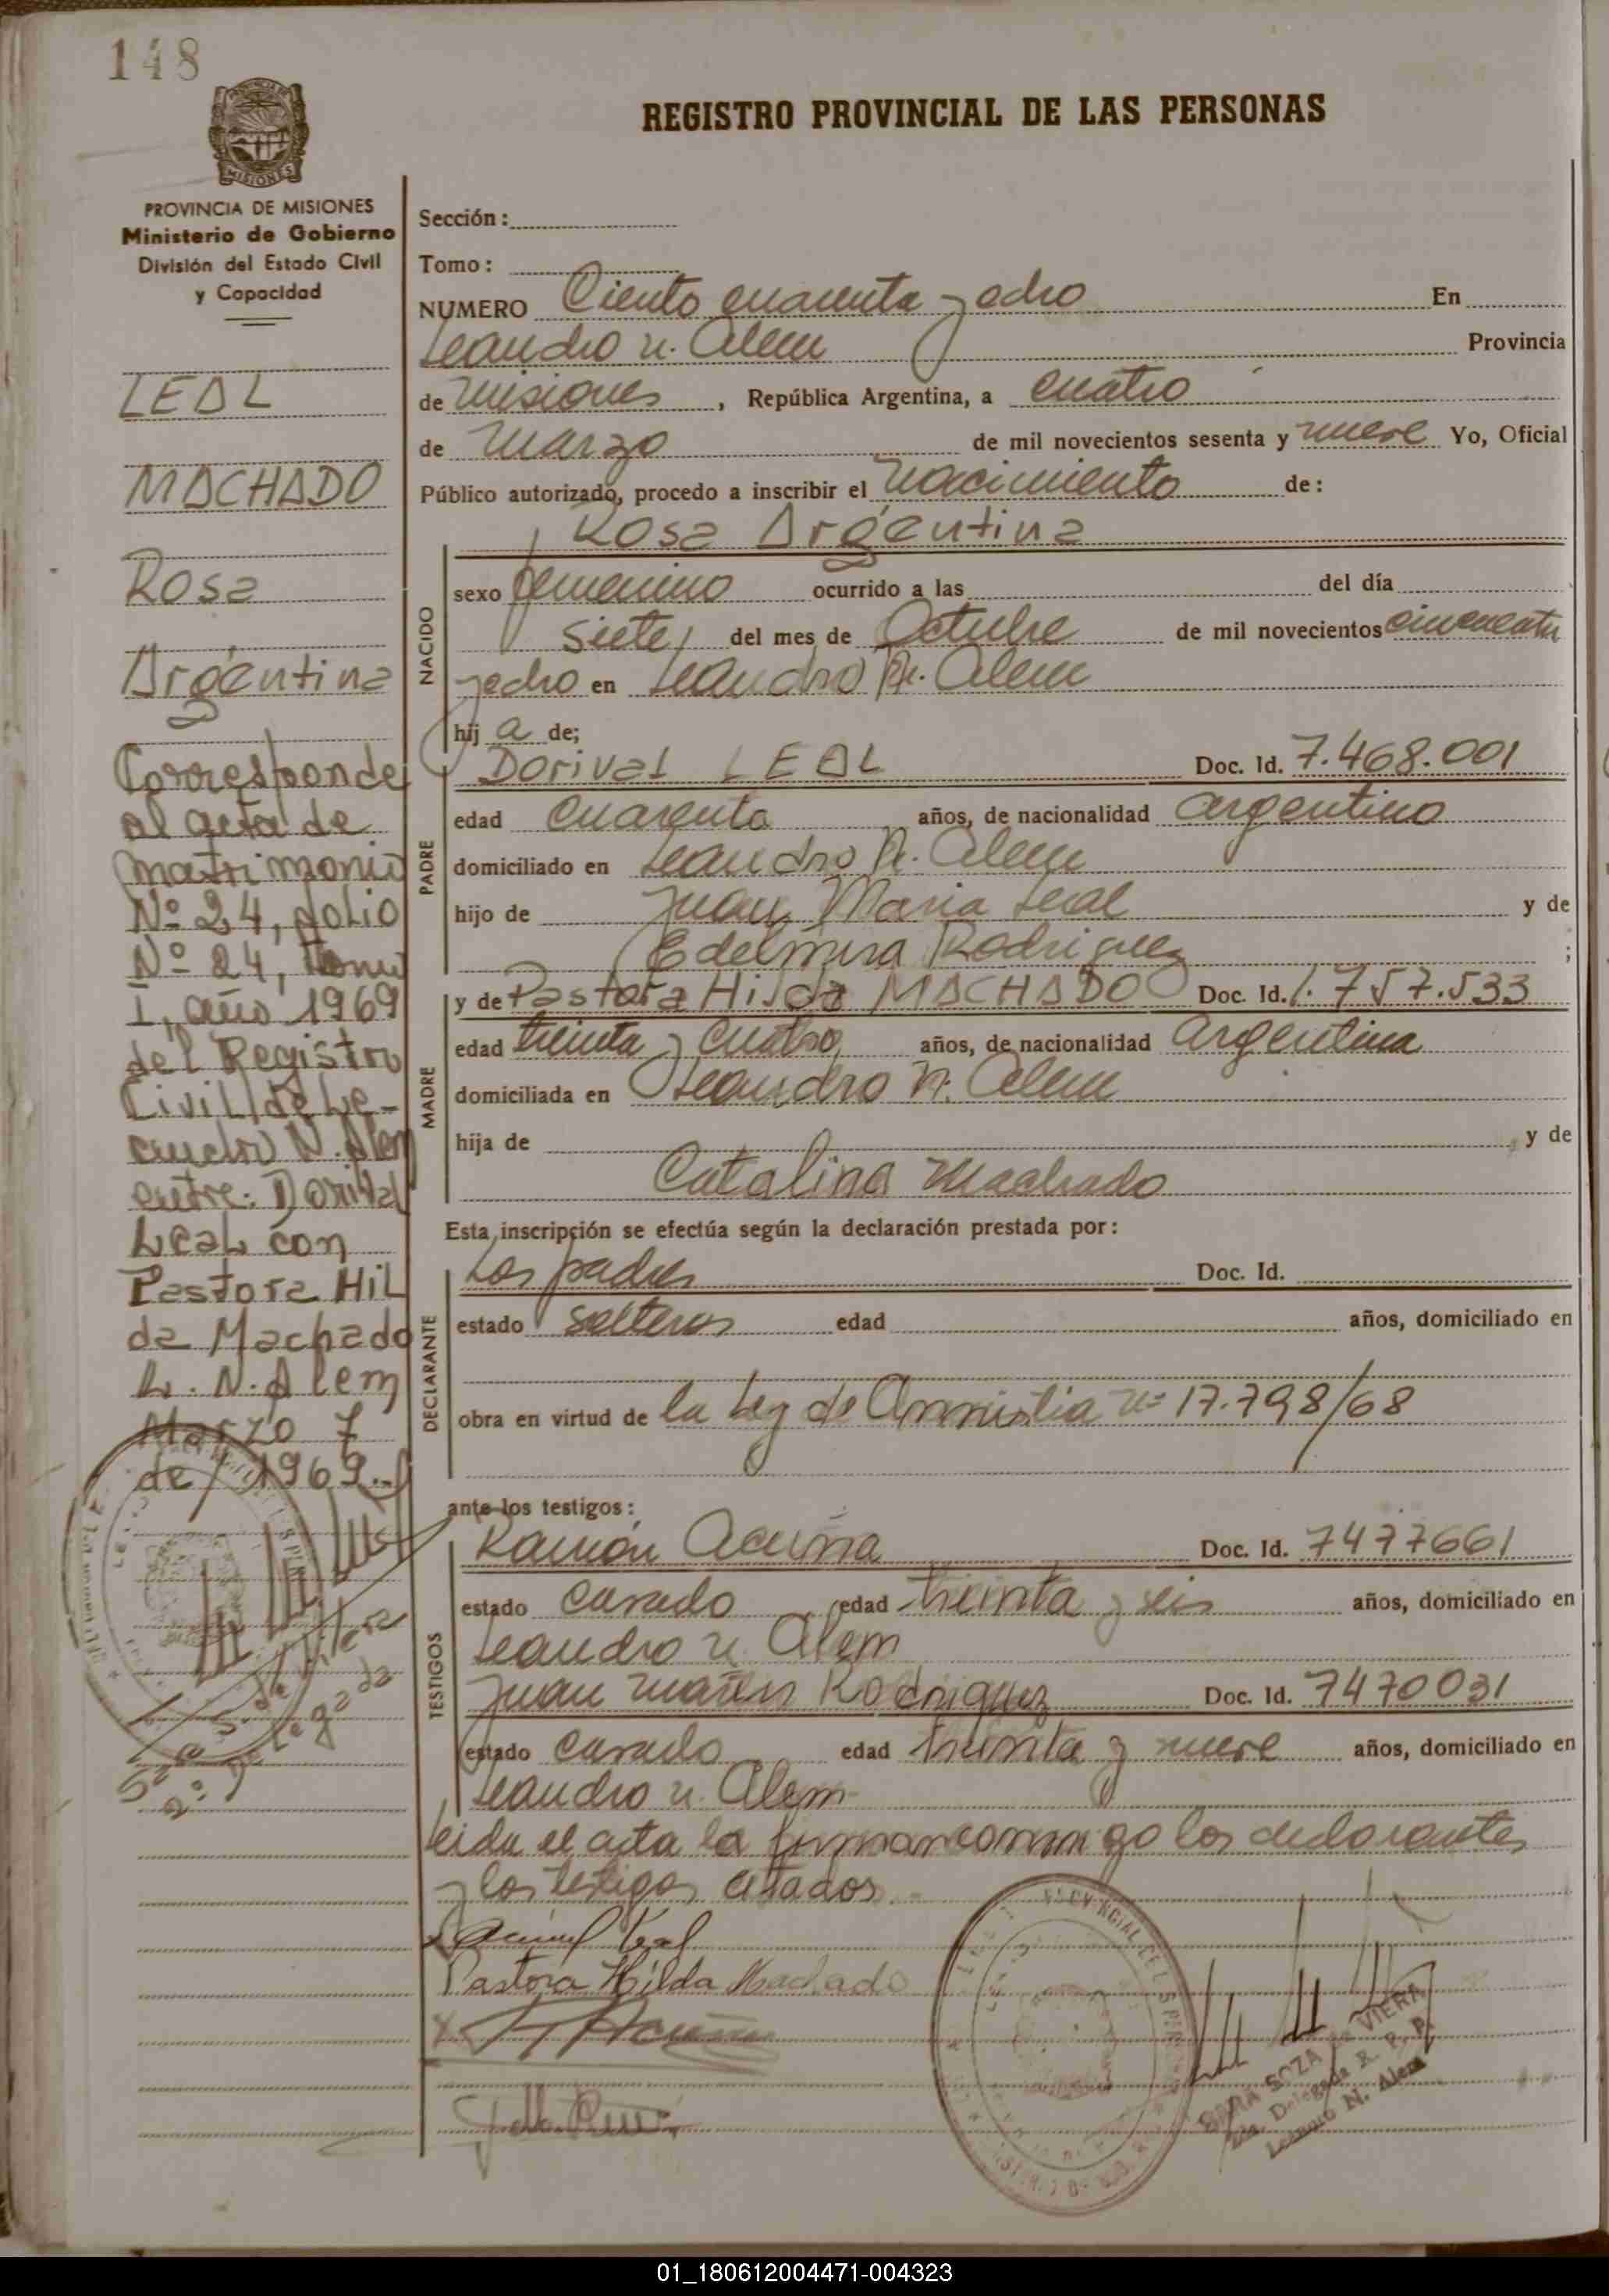 148
PROVINCIA DE MISIONES
Ministerio de Gobierno
División del Estado Civil
y Capacidad
LEAL
MACHADO
Rosa
Argentina
Corresponde
al acta de
matrimonio
Nº 24, folio
Nº 24, Tomo
I, año 1969
del Registro
Civil de Le-
andro N. Alem
entre: Dorival
Leal con
Pastora Hil
da Machado
L. N. Alem
Marzo 7
de 1969.-
REGISTRO PROVINCIAL DE LAS PERSONAS
Sección:
Tomo:
NUMERO Ciento cuarenta y ocho En
Leandro N. Alem Provincia
de Misiones, República Argentina, a cuatro
de Marzo de mil novecientos sesenta y nueve Yo, Oficial
Público autorizado, procedo a inscribir el Nacimiento de:
Rosa Argentina
NACIDO
sexo femenino ocurrido a las del día
siete del mes de Octubre de mil novecientos cincuenta
y ocho en Leandro N. Alem
hij a de;
PADRE
Dorival LEAL Doc. Id. 7.468.001
edad cuarenta años, de nacionalidad argentino
domiciliado en Leandro N. Alem
hijo de Juan Maria Leal y de
Edelmira Rodriguez ;
MADRE
y de Pastora Hilda MACHADO Doc. Id. 1.757.533
edad treinta y cuatro años, de nacionalidad argentina
domiciliada en Leandro N. Alem
hija de y de
Catalina Machado
Esta inscripción se efectúa según la declaración prestada por:
DECLARANTE
Los padres Doc. Id.
estado solteros edad años, domiciliado en
obra en virtud de la Ley de Amnistia Nº 17.798/68
ante los testigos:
TESTIGOS
Ramón Acuña Doc. Id. 7477661
estado casado edad treinta y seis años, domiciliado en
Leandro N. Alem
Juan Rodriguez Doc. Id. 7470031
estado casado edad treinta y nueve años, domiciliado en
Leandro N. Alem
Leida el acta la firman conmigo los declarantes
y los testigos citados.
Leal
Pastora Hilda Machado
Acuña
SARA SOZA de VIERA
2da. Delegada R. P. P.
Leandro N. Alem
01_180612004471-004323